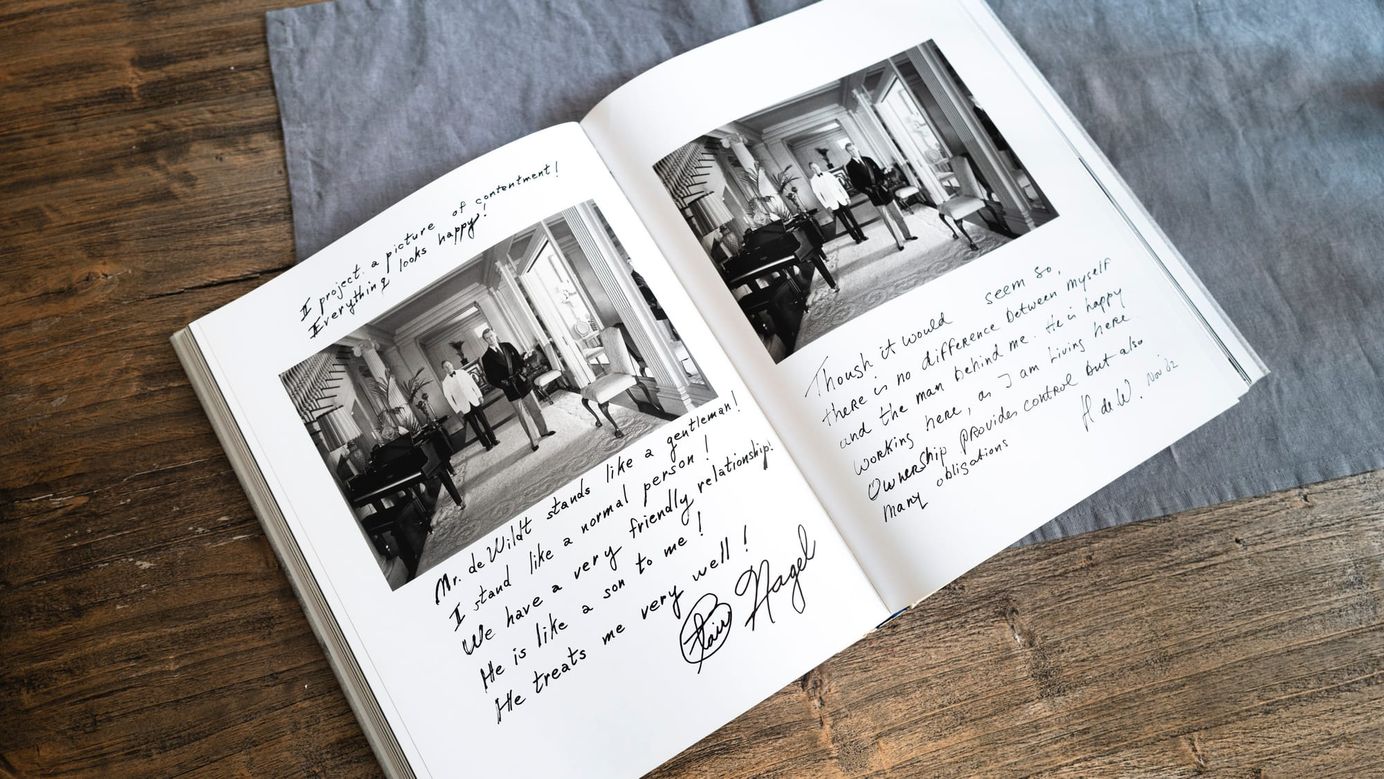 I project a picture of contentment!
Everything looks happy!
Mr. de Wildt stands like a gentleman!
I stand like a normal person!
We have a very friendly relationship!
He is like a son to me!
He treats me very well!
Nagel
Though it would seem so,
there is no difference between myself
and the man behind me. He is happy
working here, as I am living here.
Ownership provides control but also
many obligations
H de W. Nov 82